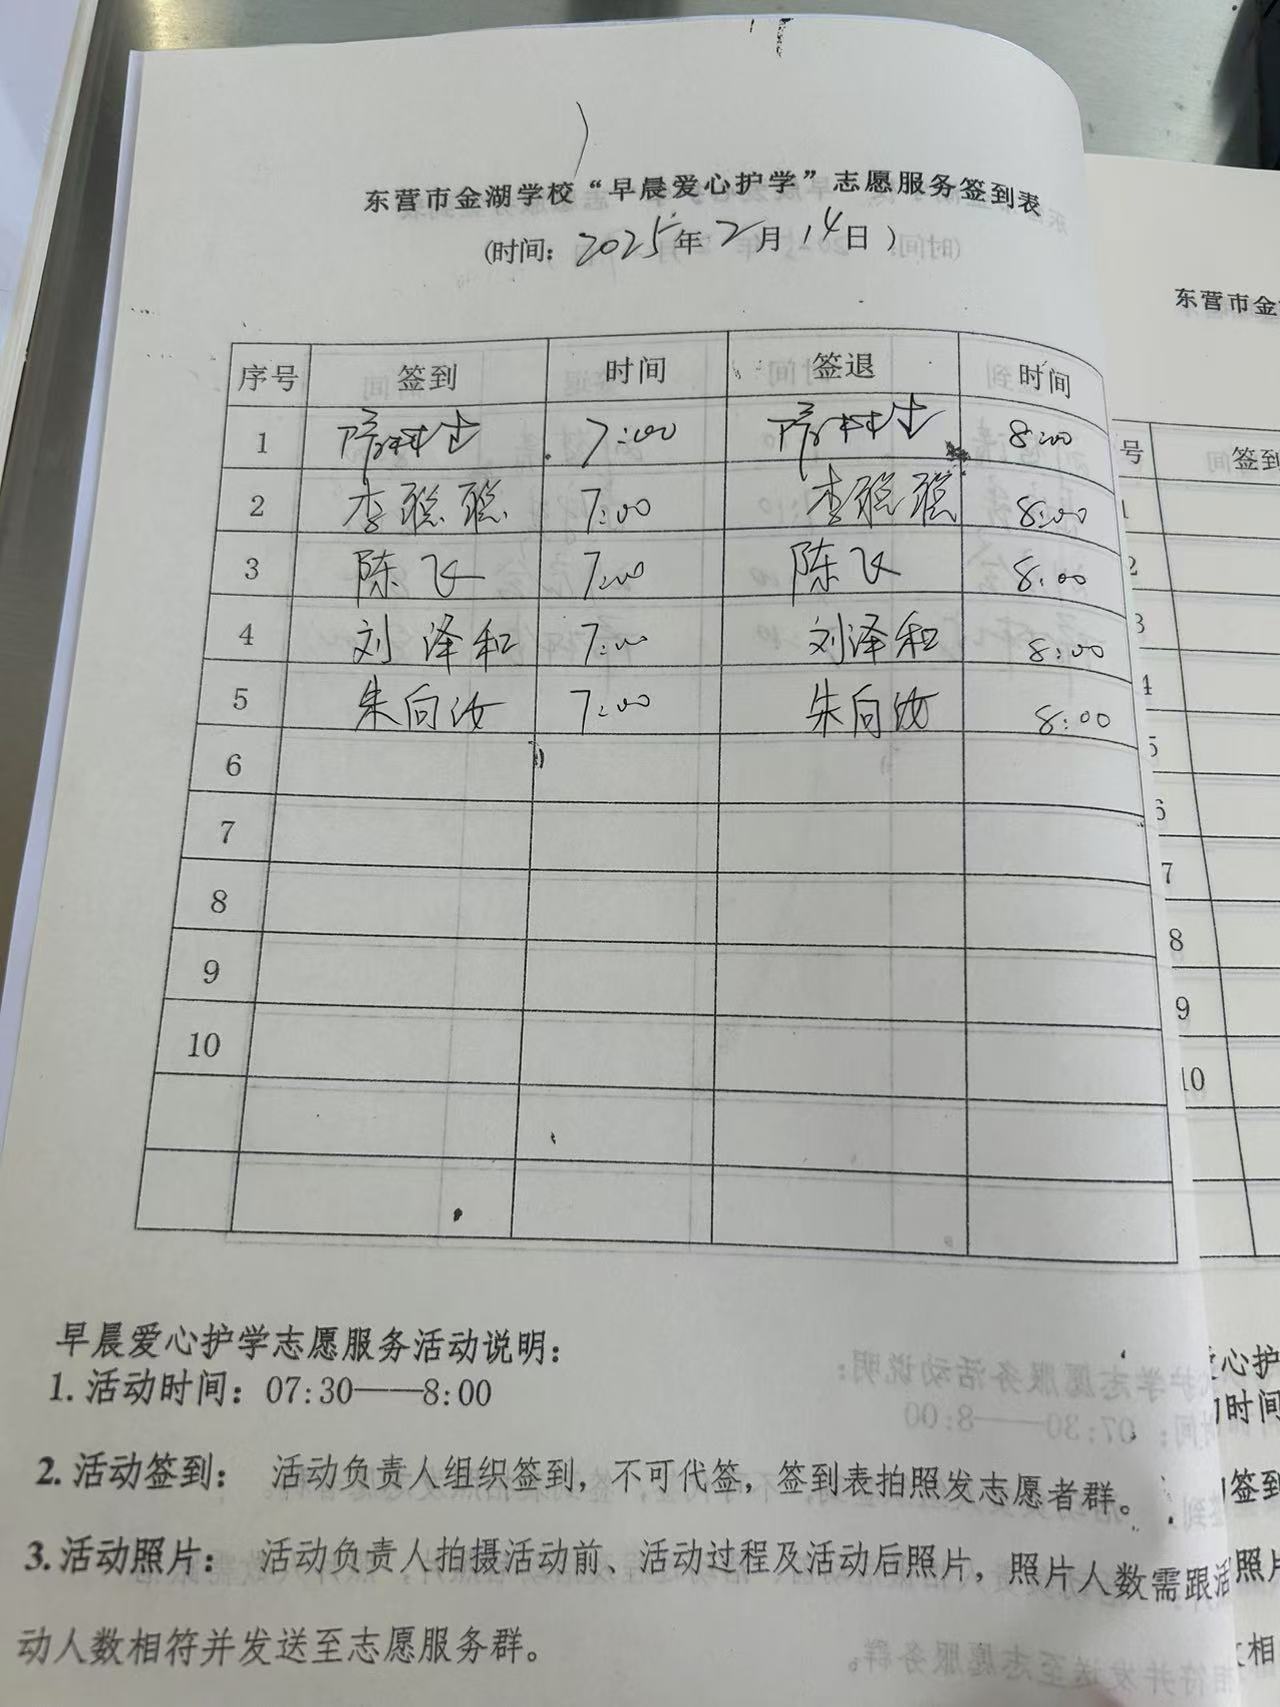 东营市金湖学校“早晨爱心护学”志愿服务签到表
(时间: 2025年2月14日)
序号 签到 时间 签退 时间
1 7:00 8:00
2 李聪聪 7:00 李聪聪 8:00
3 陈飞 7:00 陈飞 8:00
4 刘泽和 7:00 刘泽和 8:00
5 朱向汝 7:00 朱向汝 8:00
6
7
8
9
10
早晨爱心护学志愿服务活动说明:
1.活动时间: 07:30——8:00
2.活动签到: 活动负责人组织签到,不可代签,签到表拍照发志愿者群。
3.活动照片: 活动负责人拍摄活动前、活动过程及活动后照片,照片人数需跟活
动人数相符并发送至志愿服务群。
东营市金
号 签到
1
2
3
4
5
6
7
8
9
10
心护
时间
签到
照片
相